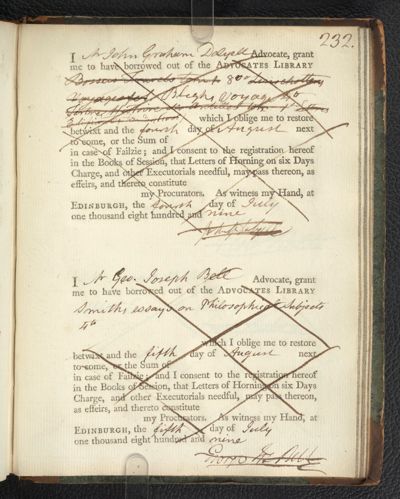 232.
I Mr John Graham Dalyell Advocate, grant
me to have borrowed out of the ADVOCATES LIBRARY
80
Voyages Blighs Voyage 4o
which I oblige me to restore
betwixt and the fourth day of August next
to come, or the Sum of
in case of Failzie; and I consent to the registration hereof
in the Books of Session, that Letters of Horning on six Days
Charge, and other Executorials needful, may pass thereon, as
effeirs, and thereto constitute
my Procurators. As witness my Hand, at
EDINBURGH, the fourth day of July
one thousand eight hundred and nine
I Mr Geo. Joseph Bell Advocate, grant
me to have borrowed out of the ADVOCATES LIBRARY
Smith's essays on Philosophical Subjects
4to
which I oblige me to restore
betwixt and the fifth day of August next
to come, or the Sum of
in case of Failzie; and I consent to the registration hereof
in the Books of Session, that Letters of Horning on six Days
Charge, and other Executorials needful, may pass thereon,
as effeirs, and thereto constitute
my Procurators. As witness my Hand, at
EDINBURGH, the fifth day of July
one thousand eight hundred and nine